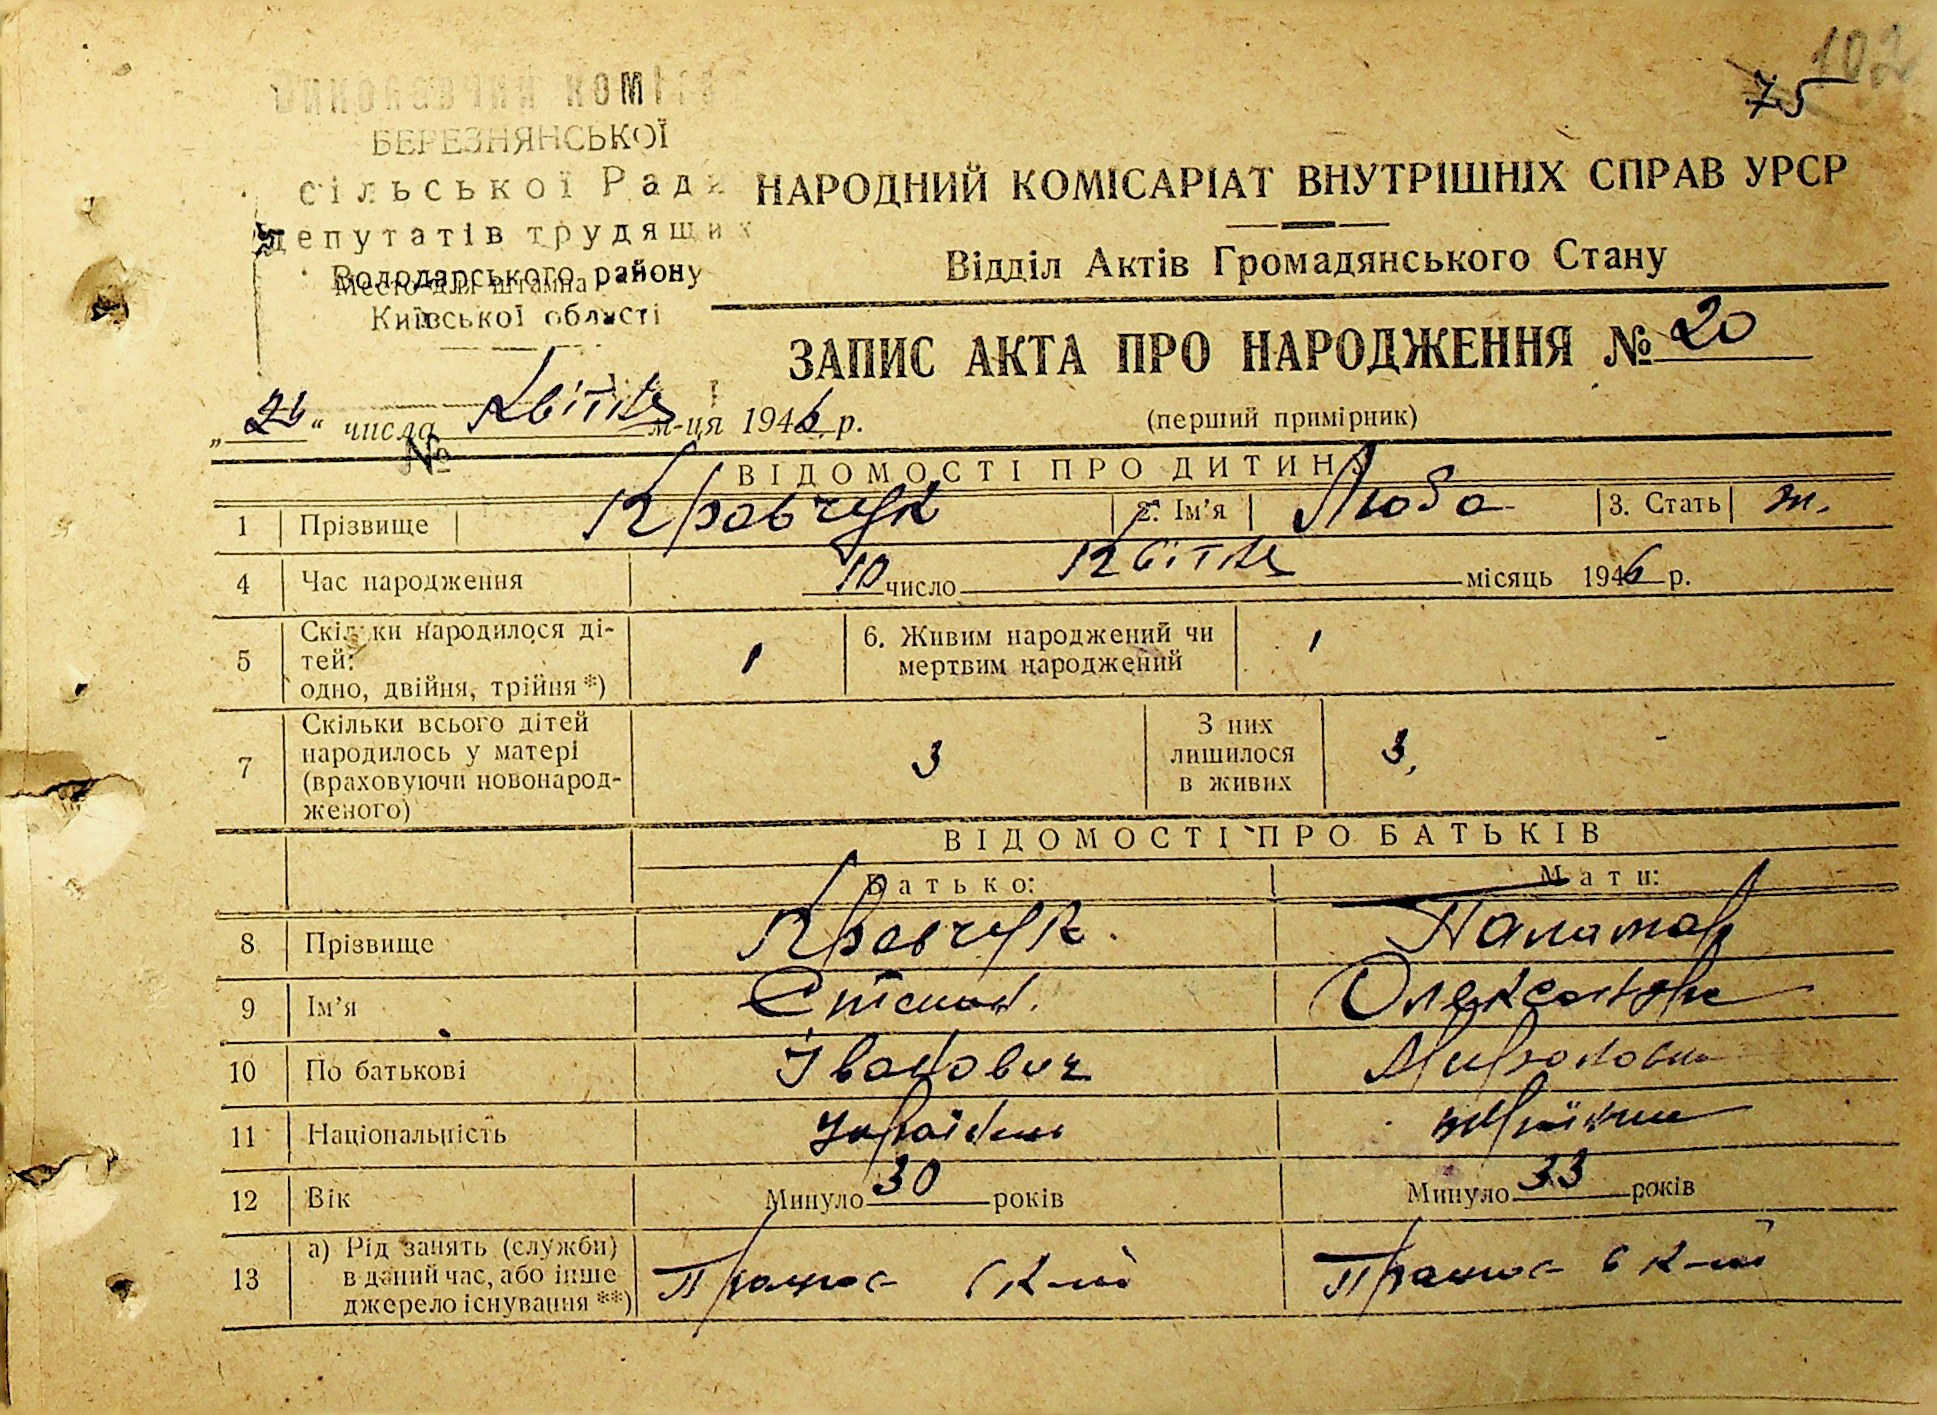 102
75
Виконавчий коміт
БЕРЕЗНЯНСЬКОЇ
сільської Ради
депутатів трудящих
Володарського району
Место для штампа
Київської області
НАРОДНИЙ КОМІСАРІАТ ВНУТРІШНІХ СПРАВ УРСР
Відділ Актів Громадянського Стану
ЗАПИС АКТА ПРО НАРОДЖЕННЯ № 20
„26“ числа Квітня м-ця 1946 р. (перший примірник)
№
ВІДОМОСТІ ПРО ДИТИНУ
1 Прізвище Кравчук 2. Ім’я Люба 3. Стать ж.
4 Час народження 10 число Квітня місяць 1946 р.
5 Скільки народилося ді-
тей:
одно, двійня, трійня *) 1 6. Живим народжений чи
мертвим народжений 1
7 Скільки всього дітей
народилось у матері
(враховуючи новонарод-
женого) 3 З них
лишилося
в живих 3,
ВІДОМОСТІ ПРО БАТЬКІВ
Батько: Мати:
8 Прізвище Кравчук. Паламар
9 Ім’я Степан. Олександра
10 По батькові Іванович
11 Національність Українець українка
12 Вік Минуло 30 років Минуло 33 років
13 а) Рід занять (служби)
в даний час, або інше
джерело існування **) Працює в к-пі Працює в к-пі